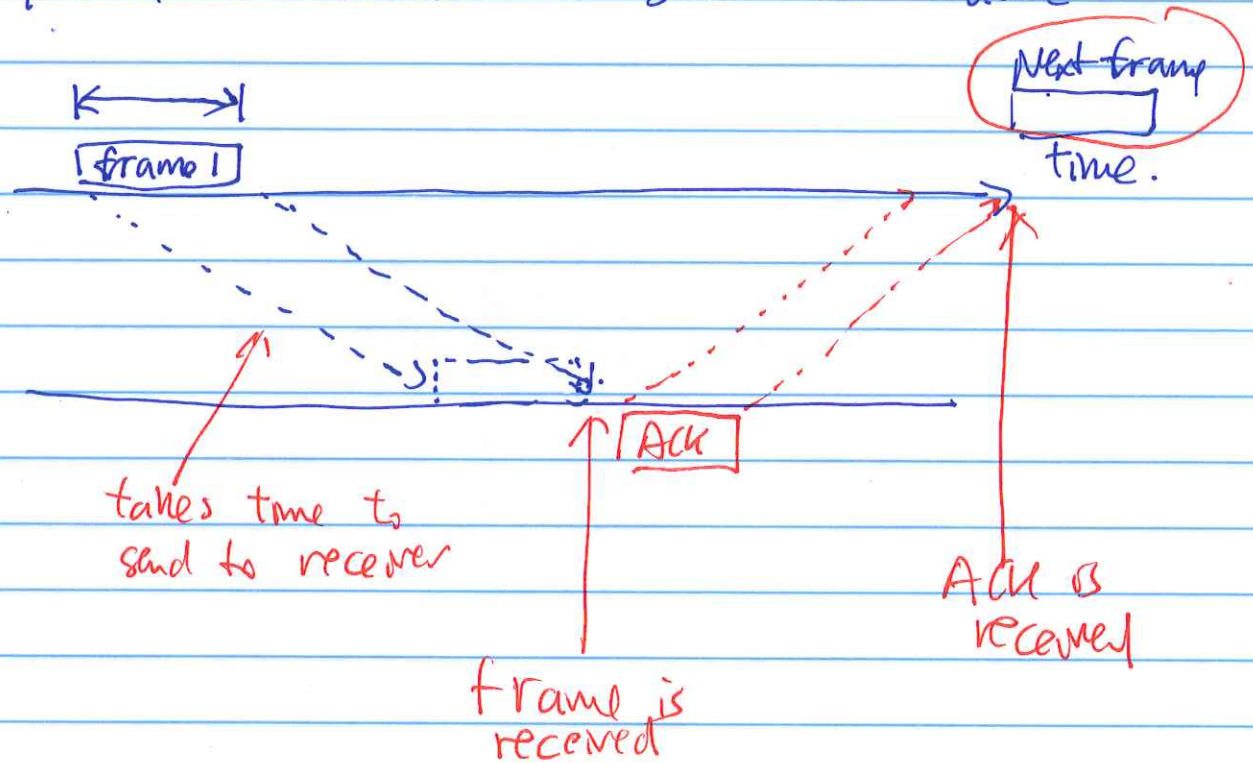 Next frame
frame 1
time.
ACK
takes time to
send to receiver
ACK is
received
frame is
received